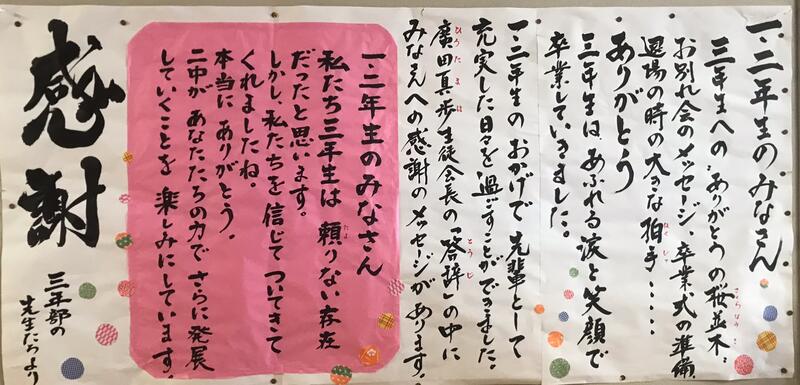 一・二年生のみなさん
三年生への、ありがとうの桜並木、
お別れ会のメッセージ、卒業式の準備
退場の時の大きな拍手・・・・・
ありがとう
三年生は、あふれる涙と笑顔で
卒業していきました。
一・二年生のおかげで先輩として
充実した日々を過ごすことができました。
廣田真歩生徒会長の「答辞」の中に
みなさんへの感謝のメッセージがあります。
一・二年生のみなさん
私たち三年生は 頼りない存在
だったと思います。
しかし、私たちを信じて ついてきて
くれましたね。
本当に ありがとう。
二中が あなたたちの力で さらに発展
していくことを 楽しみにしています。
感謝
三年部の
先生たちより